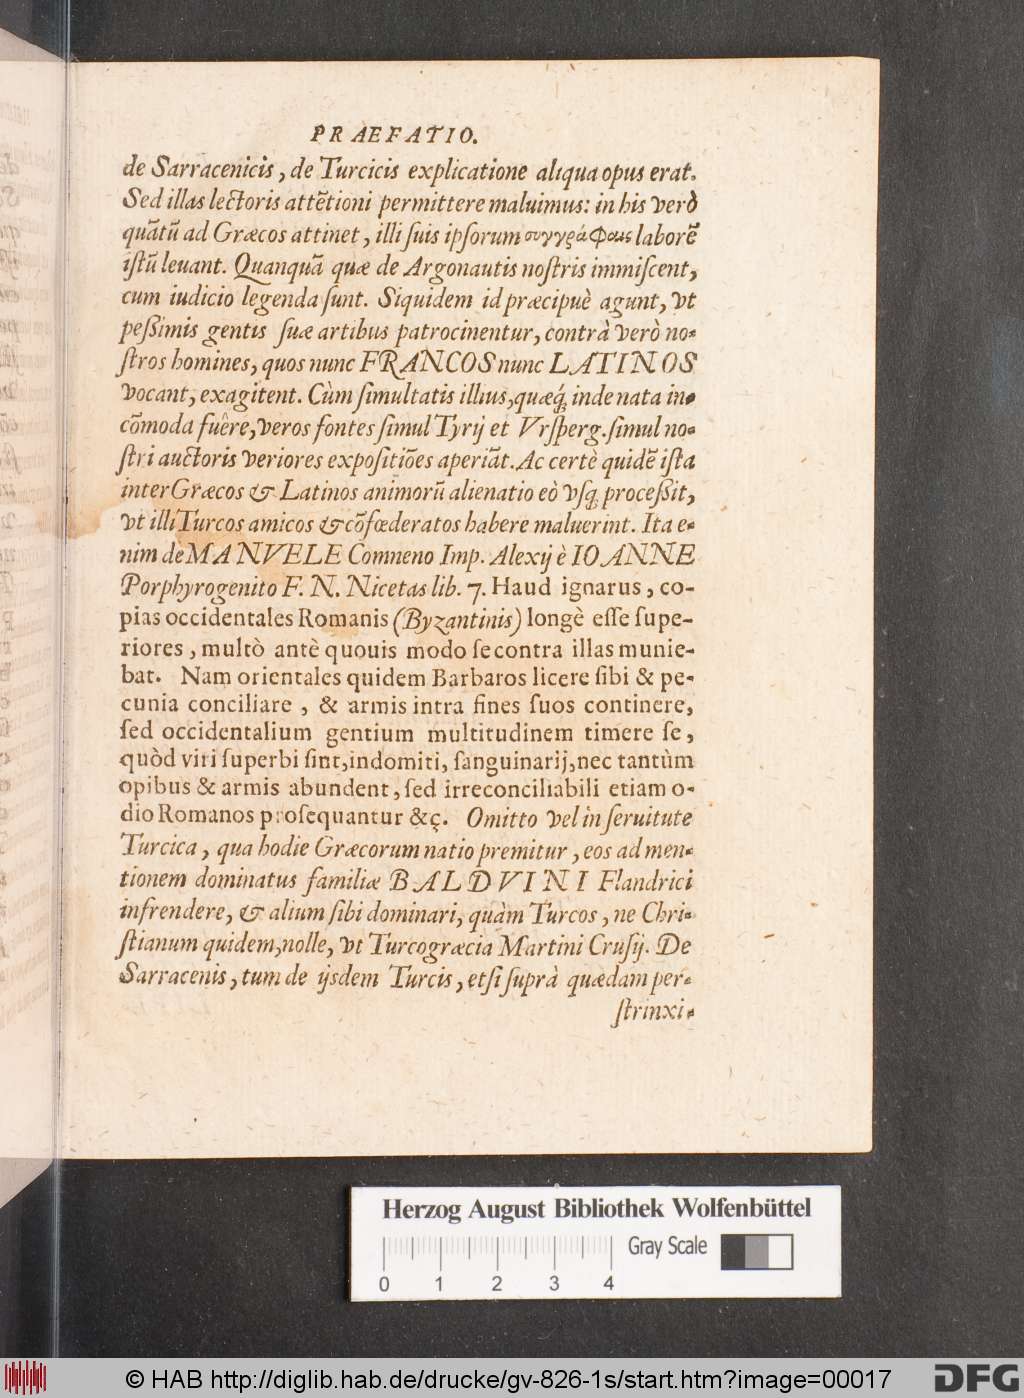 PRAEFATIO.
de Sarracenicis, de Turcicis explicatione aliqua opus erat.
Sed illas lectoris attẽtioni permittere maluimus: in his verò
quãtũ ad Græcos attinet, illi suis ipsorum συγγράφαις laborẽ
istũ leuant. Quanquã quæ de Argonautis nostris immiscent,
cum iudicio legenda sunt. Siquidem id præcipuè agunt, vt
pessimis gentis suæ artibus patrocinentur, contrà verò no-
stros homines, quos nunc FRANCOS nunc LATINOS
vocant, exagitent. Cùm simultatis illius, quæq́; inde nata in-
cõmoda fuêre, veros fontes simul Tyrij et Vrsperg. simul no-
stri auctoris veriores expositiões aperiãt. Ac certè quidẽ ista
inter Græcos & Latinos animorũ alienatio eò vsq; processit,
vt illi Turcos amicos & cõfœderatos habere maluerint. Ita e-
nim de MANVELE Comneno Imp. Alexij è IOANNE
Porphyrogenito F. N. Nicetas lib. 7. Haud ignarus, co-
pias occidentales Romanis (Byzantinis) longè esse supe-
riores, multò antè quouis modo se contra illas munie-
bat. Nam orientales quidem Barbaros licere sibi & pe-
cunia conciliare, & armis intra fines suos continere,
sed occidentalium gentium multitudinem timere se,
quòd viri superbi sint, indomiti, sanguinarij, nec tantùm
opibus & armis abundent, sed irreconciliabili etiam o-
dio Romanos prosequantur &ç. Omitto vel in seruitute
Turcica, qua hodie Græcorum natio premitur, eos ad men-
tionem dominatus familiæ BALDVINI Flandrici
infrendere, & alium sibi dominari, quàm Turcos, ne Chri-
stianum quidem, nolle, vt Turcogræcia Martini Crusij. De
Sarracenis, tum de ijsdem Turcis, etsi suprà quædam per-
strinxi-
Herzog August Bibliothek Wolfenbüttel
Gray Scale
0 1 2 3 4
© HAB http://diglib.hab.de/drucke/gv-826-1s/start.htm?image=00017
DFG